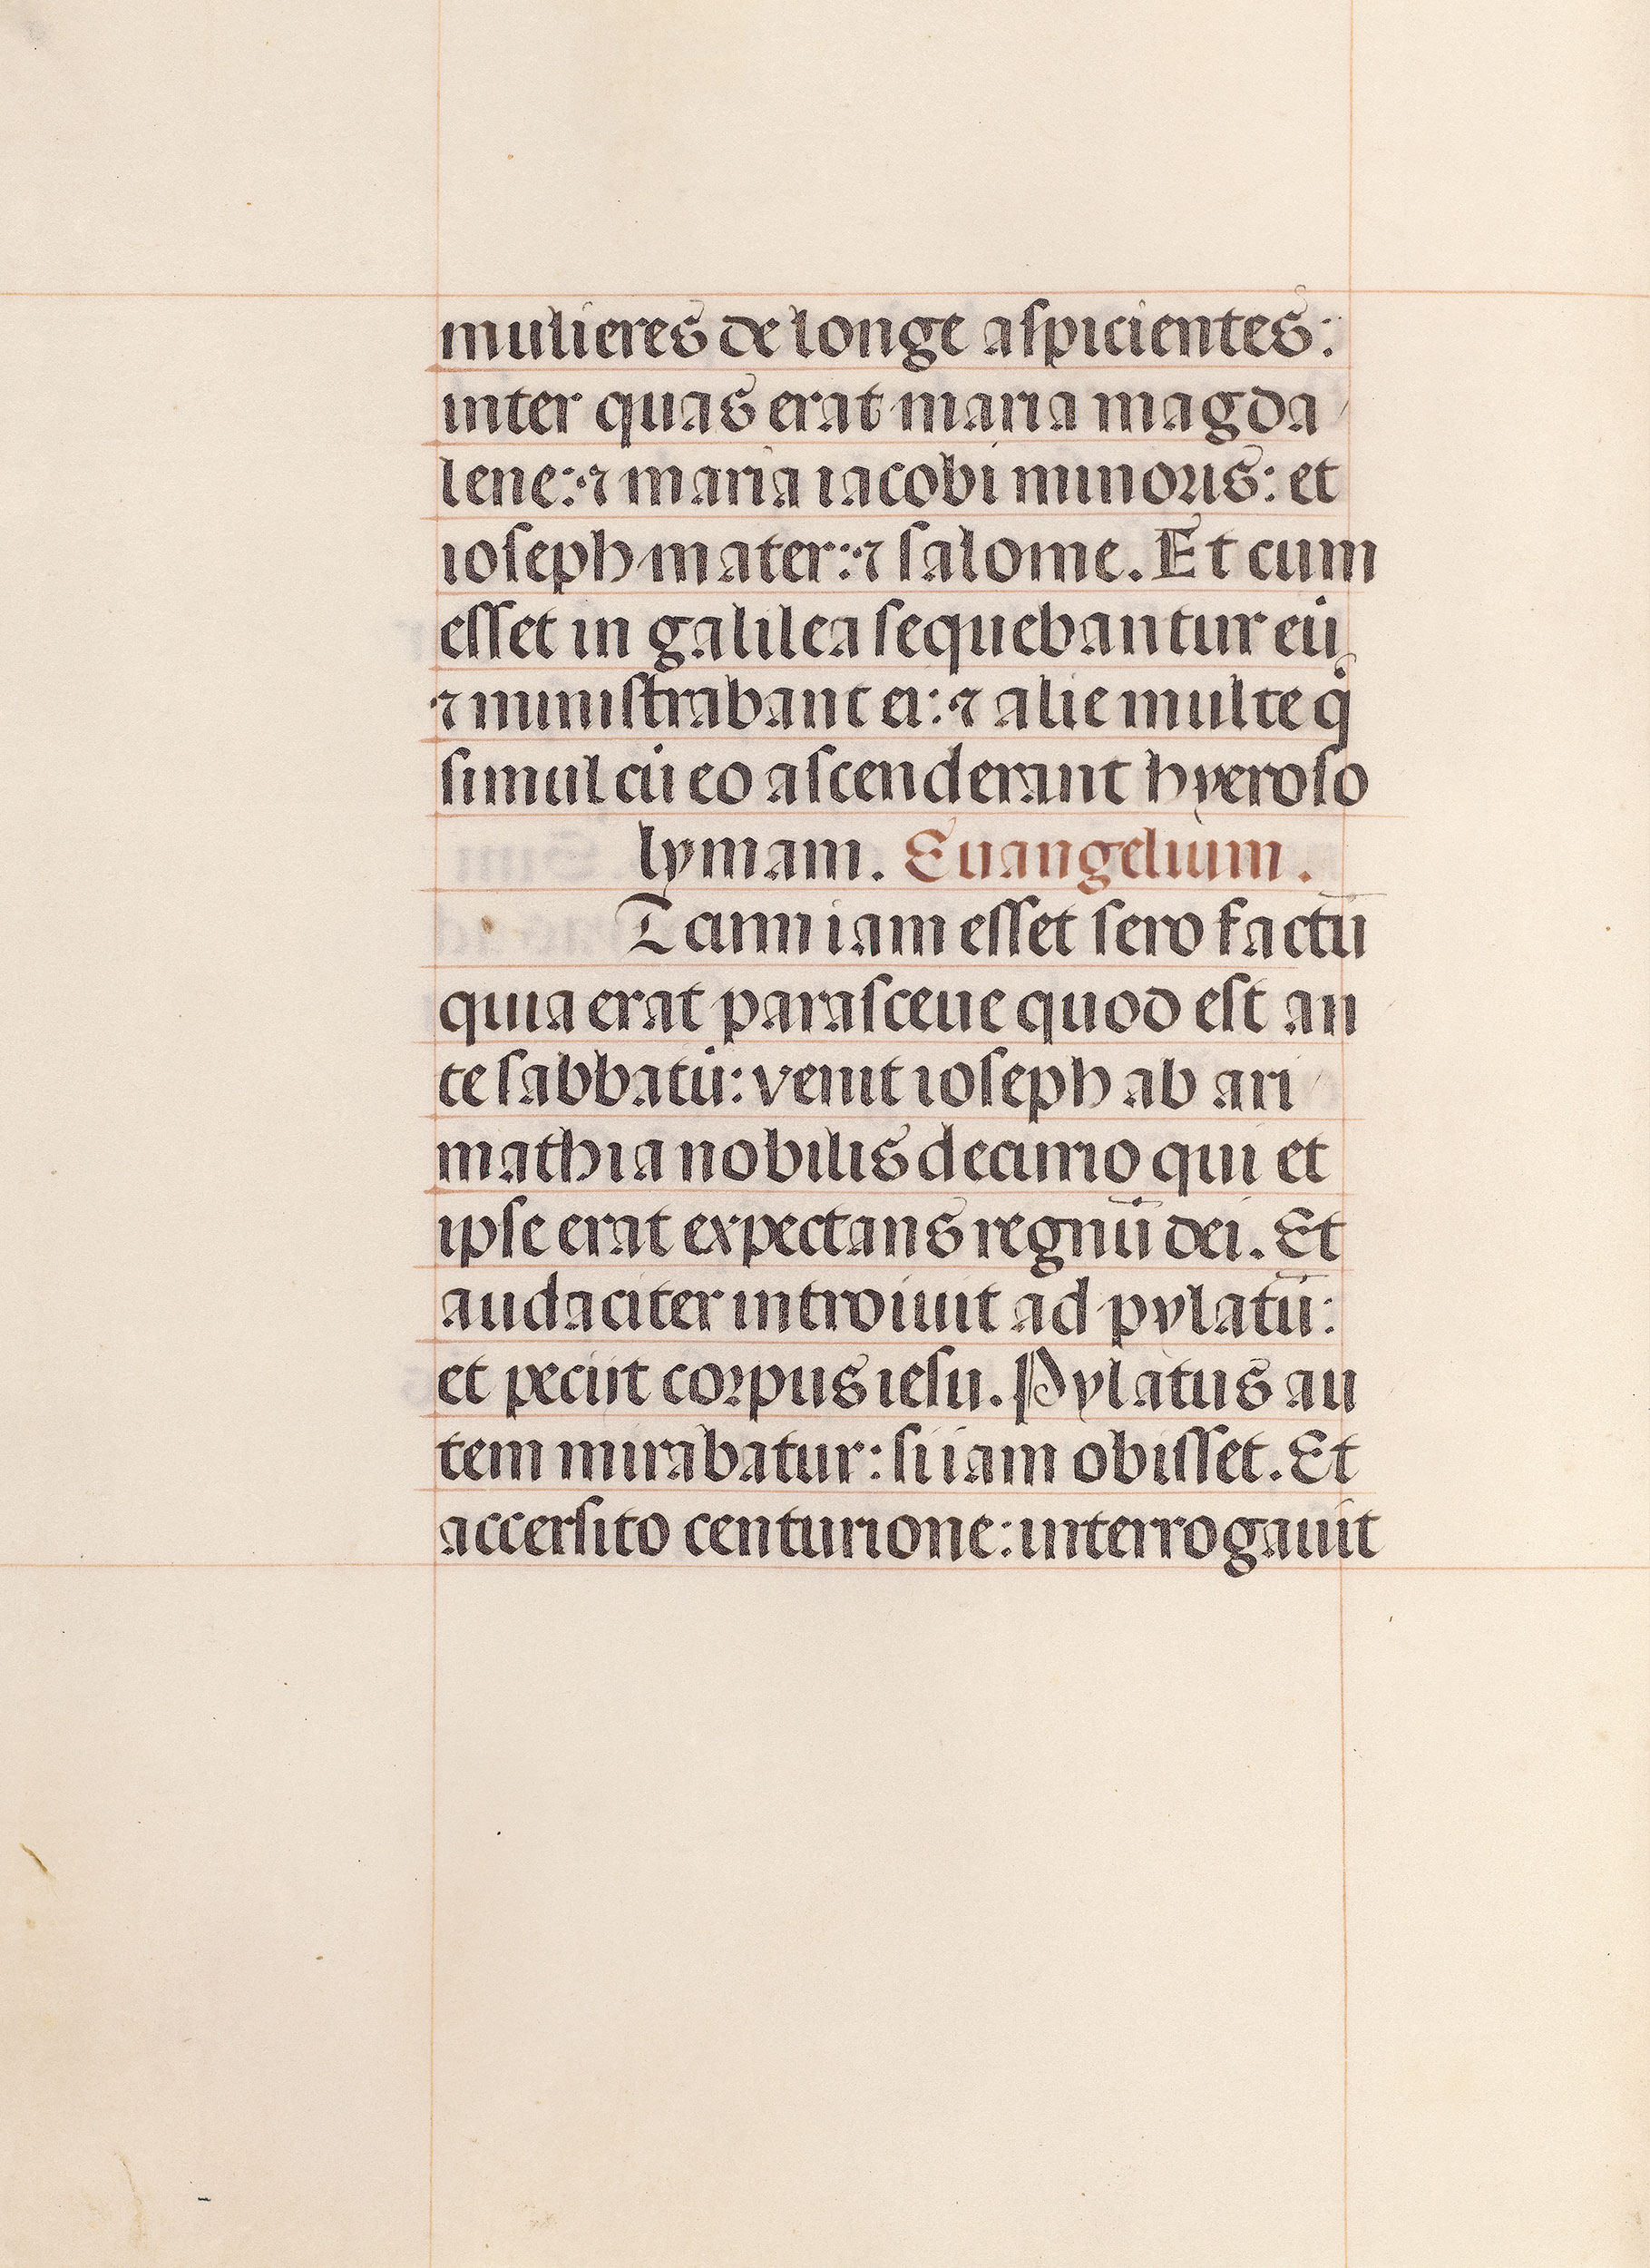 mulieres de longe aspicientes:
inter quas erat maria magda
lene: ⁊ maria iacobi minoris: et
ioseph mater: ⁊ salome. Et cum
esset in galilea sequebantur eū
⁊ ministrabant ei: ⁊ alie multe q̄
simul cū eo ascenderant hyeroso
lymam. Euangelium.
T cum iam esset sero factū
quia erat parasceue quod est an
te sabbatū: venit ioseph ab ari
mathia nobilis decurio qui et
ipse erat expectans regnū dei. Et
audaciter introiuit ad pylatū:
et peciit corpus iesu. Pylatus au
tem mirabatur: si iam obisset. Et
accersito centurione: interrogauit